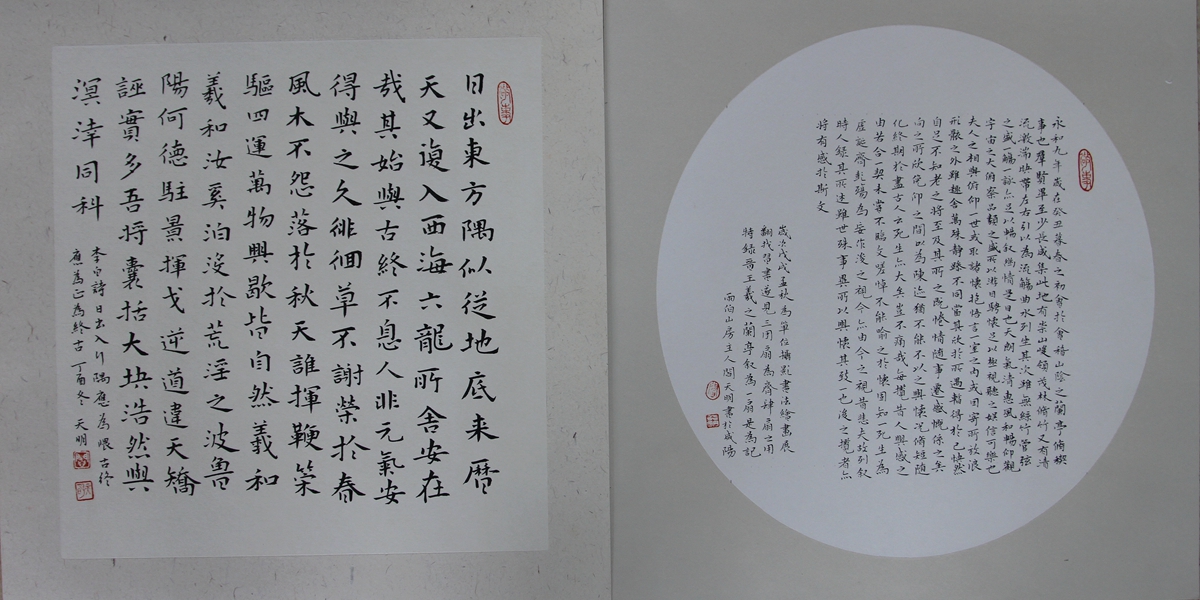 日出東方隅似從地底来曆
天又復入西海六龍所舍安在
哉其始與古終不息人非元氣安
得與之久徘徊草不謝榮於春
風木不怨落於秋天誰揮鞭策
驅四運萬物興歇皆自然羲和
羲和汝奚汩沒於荒淫之波魯
陽何德駐景揮戈逆道違天矯
誣實多吾將囊括大块浩然與
溟涬同科
李白詩日出入行 隅應為隈 古終
應為正為終古 丁酉冬 天明
永和九年歲在癸丑暮春之初會於會稽山陰之蘭亭脩禊
事也羣賢畢至少長咸集此地有崇山峻領茂林脩竹又有清
流激湍映帶左右引以為流觴曲水列坐其次雖無絲竹管弦
之盛一觴一詠亦足以暢叙幽情是日也天朗氣清惠風和暢仰觀
宇宙之大俯察品類之盛所以遊目騁懷足以極視聽之娛信可樂也
夫人之相與俯仰一世或取諸懷抱悟言一室之內或因寄所託放浪
形骸之外雖趣舍萬殊静躁不同當其欣於所遇暫得於己快然
自足不知老之將至及其所之既惓情隨事遷感慨係之矣
向之所欣俛仰之間以為陳迹猶不能不以之興懷況脩短隨
化終期於盡古人云死生亦大矣豈不痛哉每攬昔人興感之
由若合一契未嘗不臨文嗟悼不能喻之於懷固知一死生為
虛誕齊彭殤為妄作後之視今亦由今之視昔悲夫故列叙
時人錄其所述雖世殊事異所以興懷其致一也後之攬者亦
將有感於斯文
歲次戊戌孟秋為單位攝影書法繪畫展
翻找舊案適見三團扇為齊肆扇之用
特録晉王羲之蘭亭叙為一扇是為記
雨伯山房主人閻天明書於咸陽